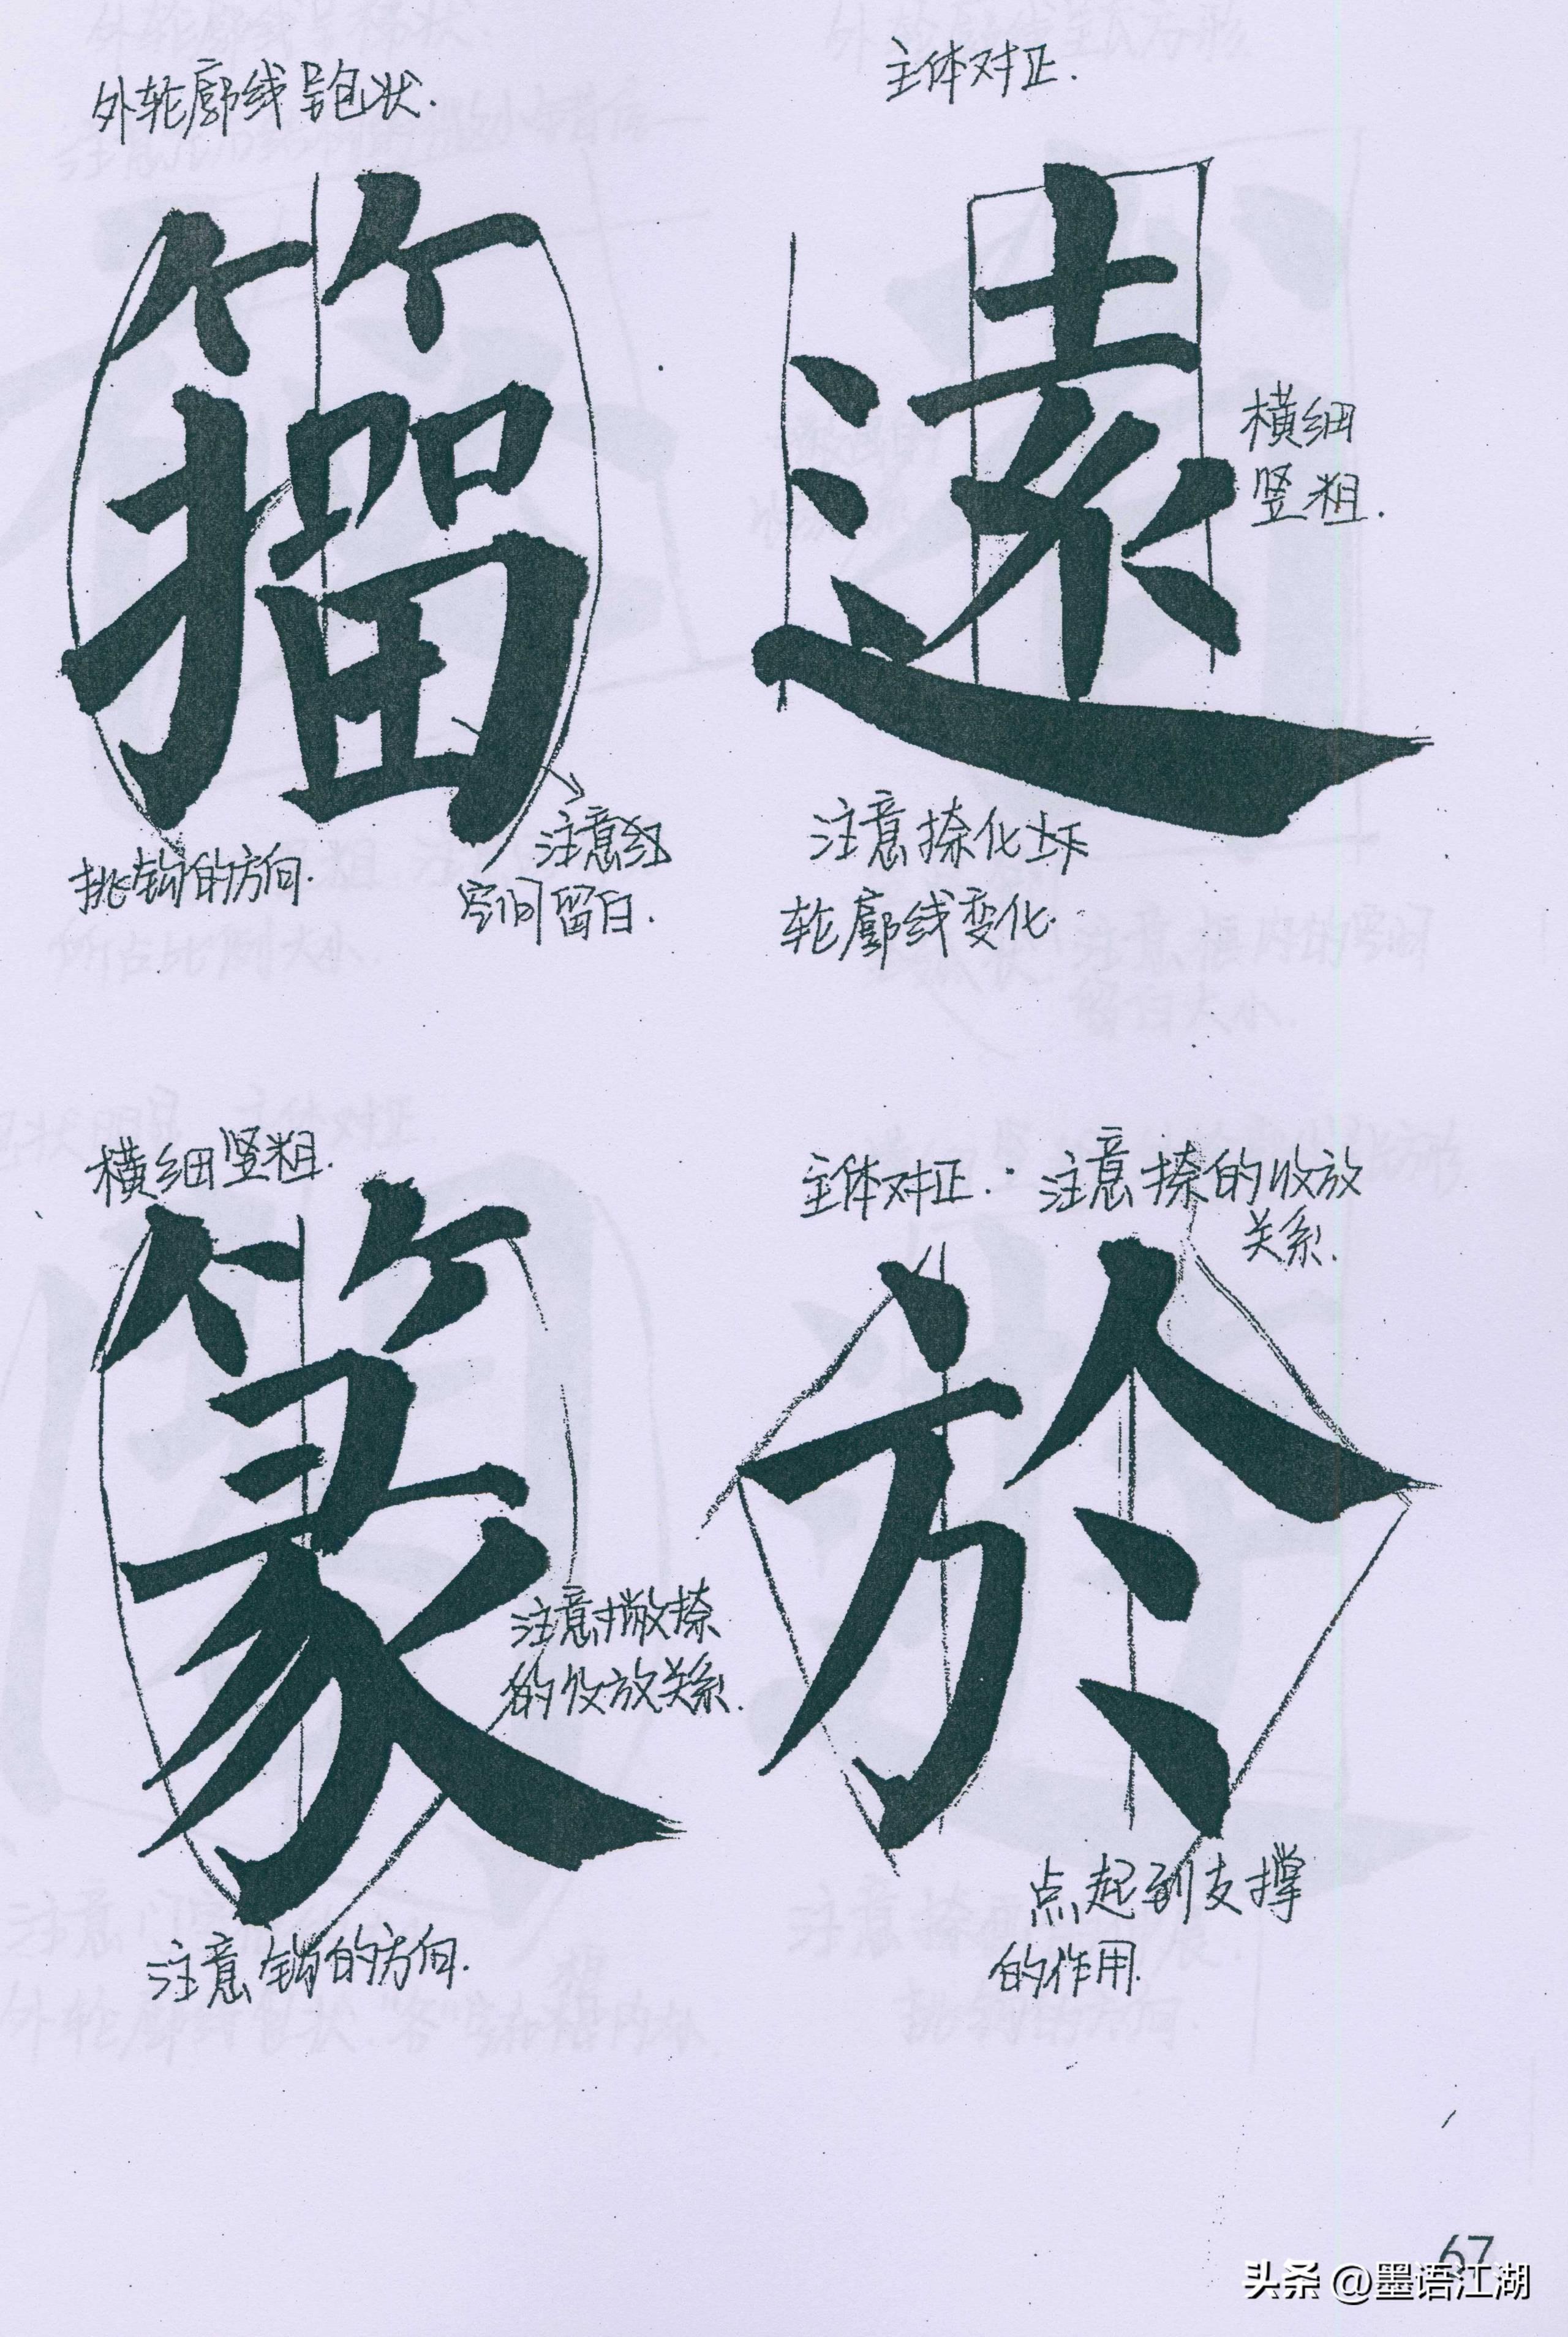 外轮廓线呈包状.
主体对正.
籀
遠
横细
竖粗.
挑钩的方向.
注意
空间留白.
注意捺化上下
轮廓线变化.
横细竖粗.
主体对正. 注意捺的收放
关系.
篆
於
注意撇捺
的收放关系.
注意钩的方向.
点起到支撑
的作用.
67
头条 @墨语江湖